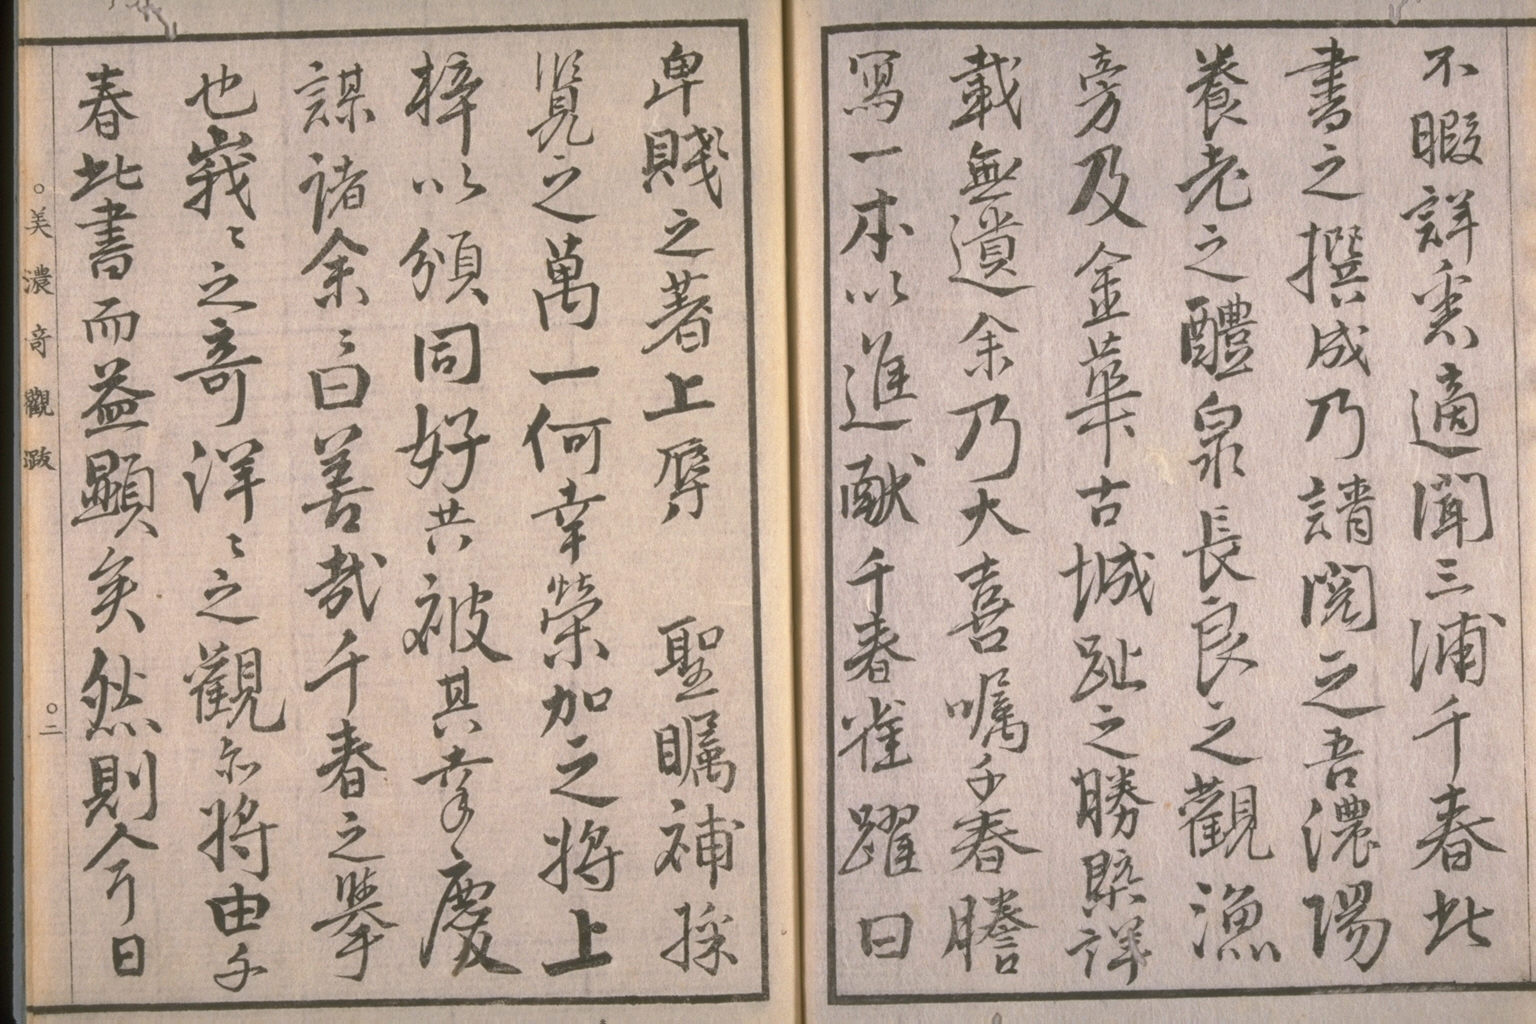 不暇詳悉適聞三浦千春此
書之撰成乃請閲之吾濃陽
養老之醴泉長良之觀漁
旁及金華古城趾之勝槩詳
載無遺余乃大喜嘱千春謄
寫一本以進獻千春雀躍曰
卑賤之著上辱 聖矚補採
覧之萬一何幸榮加之將上
梓以頒同好共被其幸慶
謀諸余〻曰善哉千春之擧
也峩〻之奇洋〻之觀亦將由千
春此書而益顯矣然則今日
美濃奇觀跋
二